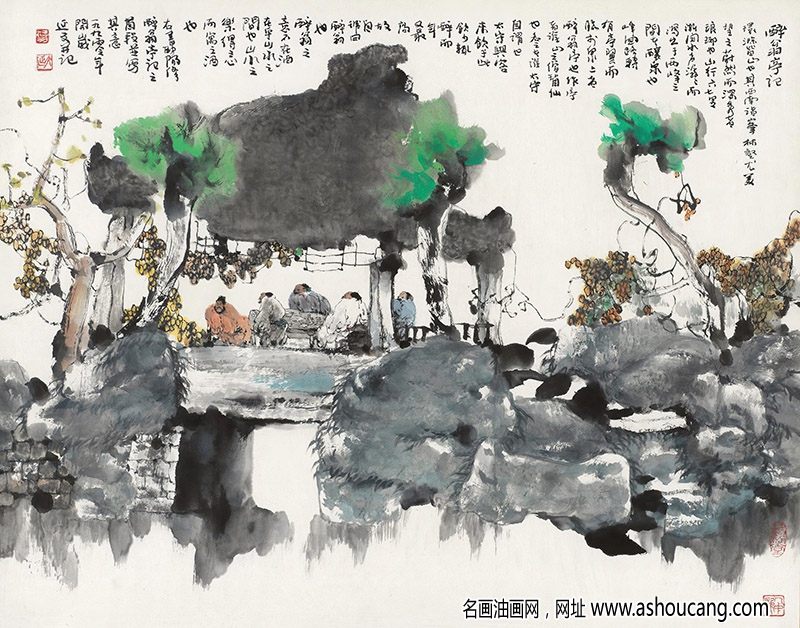 醉翁亭记
環滁皆山也其西南諸峯林壑尤美
望之蔚然而深秀者
琅琊也山行六七里
漸聞水声潺潺而
瀉出于兩峰之
間釀泉也
峰回路轉
有亭翼然而
臨於泉上者
醉翁亭也作亭
者誰山之僧智仙
也名之者誰太守
自謂也
太守與客
來飲于此
飲少輒
醉而
年
又最
高
故
自
號曰
醉翁
醉翁之
意不在酒
在乎山水之
間也山水之
樂得之心
而寓之酒
也
右書歐陽修
醉翁亭記之
首段並寫
其意
一九九零年
并記
名画油画网，网址 www.ashoucang.com